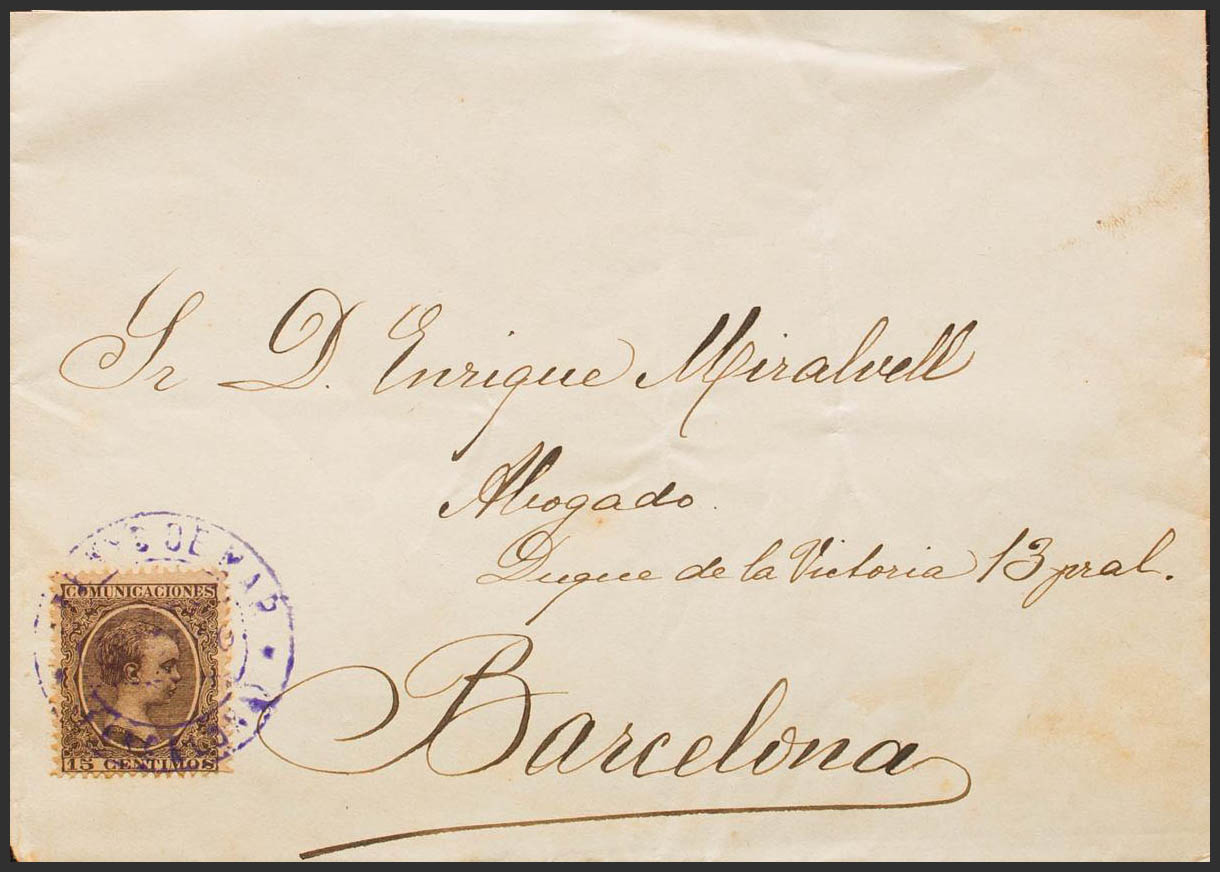 Sr D. Enrique Miralvell
Abogado.
Duque de la Victoria 13 pral.
Barcelona
DE MAR
COMUNICACIONES
15 CENTIMOS